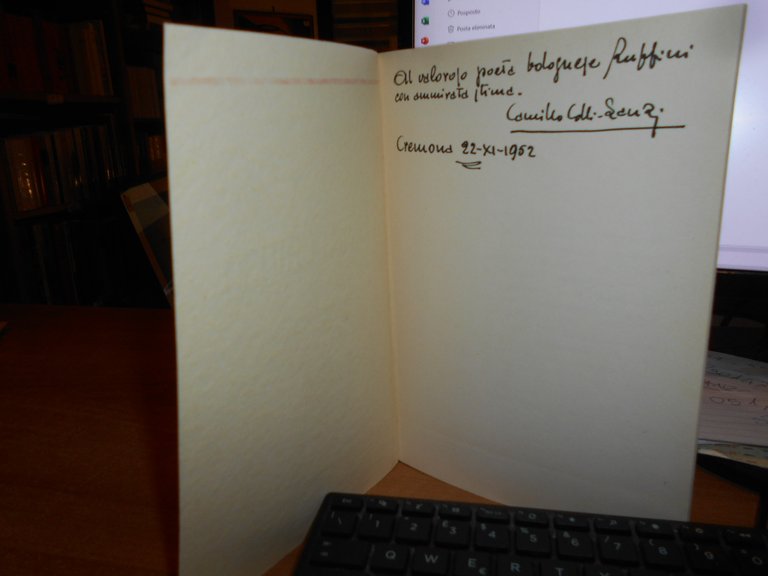 Al valoroso poeta bolognese Ruffini
con ammirata stima.
Camillo
Cremona 22-XI-1952
Proposto
Posta eliminata